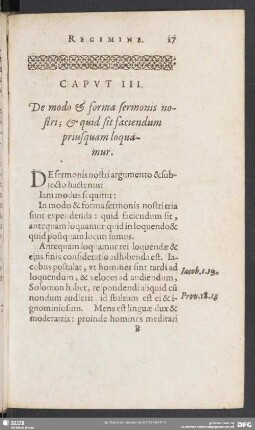 REGIMINE. 17
CAPVT III.
De modo & forma sermonis no-
stri; & quid sit faciendum
priusquam loqua-
mur.
DE sermonis nostri argumento & sub-
iecto hactenus:
Iam modus sequitur:
In modo & forma sermonis nostri tria
sunt expendenda: quid faciendum sit,
antequam loquamur: quid in loquendo &
quid postquam locuti sumus.
Antequam loquamur rei loquendæ &
ejus finis consideratio adhibenda est. Ia-
cobus postulat, vt homines sint tardi ad
loquendum, & veloces ad audiendum,
Iacob. 1. 19.
Solomon habet, respondendi aliquid cũ
nondum audierit id stultum est ei & i-
Prov. 18. 13
gnominiosum. Mens est linguæ dux &
moderatrix: proinde homines meditari
B
SLUB
DFG